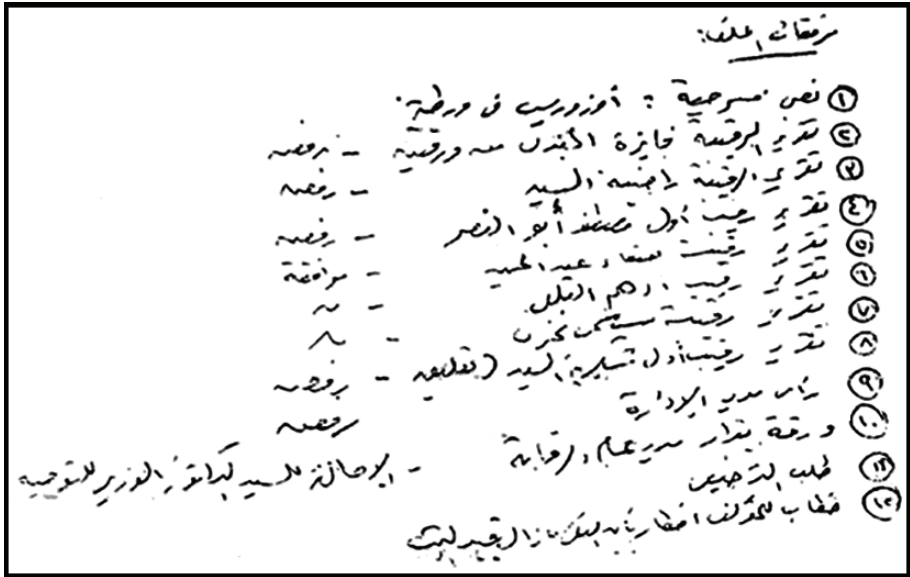 مرفقات الملف:
① نص مسرحية : أوزوريس في ورطة.
② تقرير الرقيبة فايزة الجندى من ورقتين – رفض
③ تقرير الرقيبة راضية السيد – رفض
④ تقرير رقيب أول مصطفى أبو النصر – رفض
⑤ تقرير رقيبة صفاء عبد الحميد – موافقة
⑥ تقرير رقيب أدهم – 〃
⑦ تقرير رقيبة – 〃
⑧ تقرير رقيب أول السيد – رفض
⑨ رأى مدير الإدارة رفض
⑩ ورقة بقرار مدير عام الرقابة – الإحالة للسيد الدكتور الوزير للتوجيه
⑪ طلب الترخيص
⑫ خطاب للمؤلف اخطار بأن النص مازال قيد البت